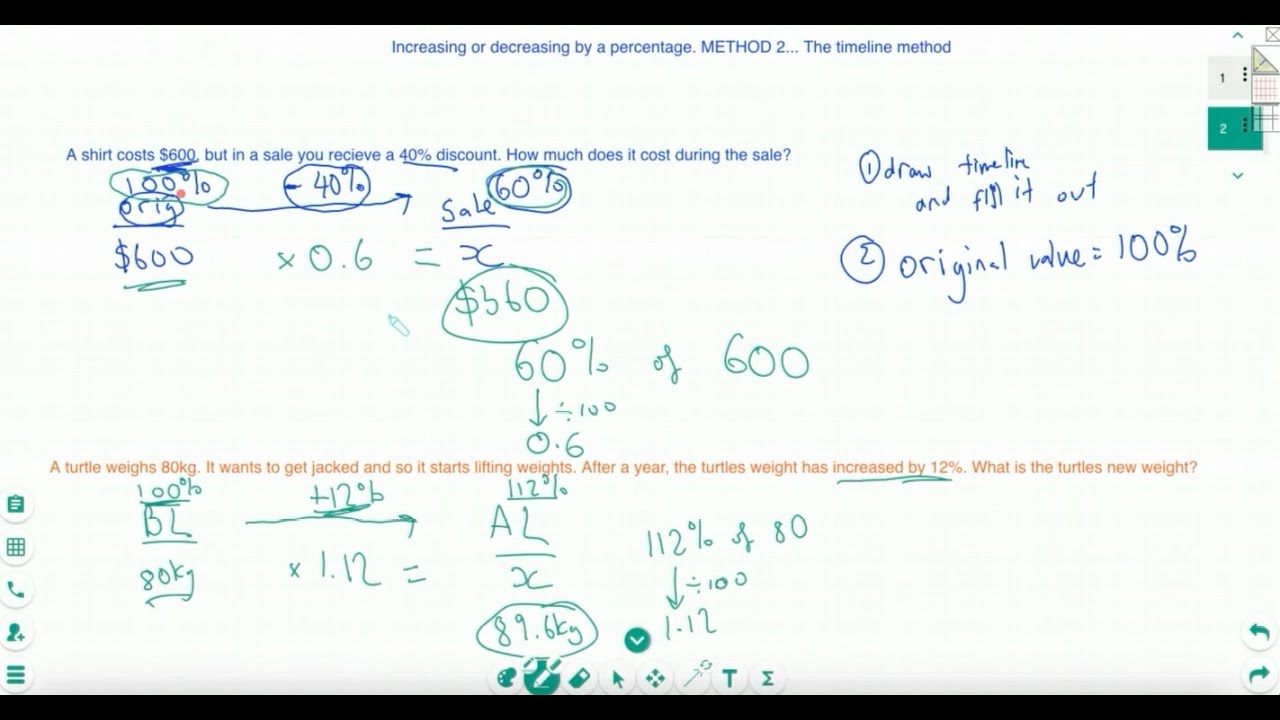 Increasing or decreasing by a percentage. METHOD 2... The timeline method
1
2
A shirt costs $600, but in a sale you recieve a 40% discount. How much does it cost during the sale?
100% - 40% 60%
orig Sale
$600 × 0.6 = x
$360
60% of 600
÷100
0.6
① draw timeline
and fill it out
② original value = 100%
A turtle weighs 80kg. It wants to get jacked and so it starts lifting weights. After a year, the turtles weight has increased by 12%. What is the turtles new weight?
100% +12% 112%
BL AL
80kg × 1.12 = x
89.6kg
112% of 80
÷100
1.12
T Σ